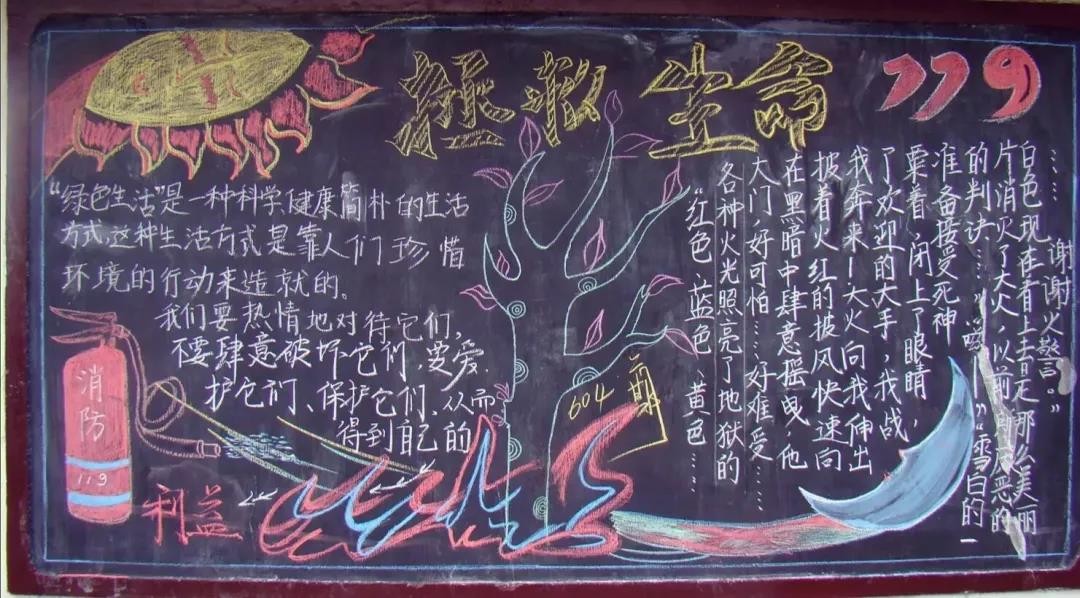 拯救生命 119
“绿色生活”是一种科学、健康简朴的生活
方式,这种生活方式是靠人们珍惜
环境的行动来造就的。
我们要热情地对待它们,
不要肆意破坏它们,要爱
护它们、保护它们、从而
得到自己的
利益
消防
119
604
“红色、蓝色、黄色……
各种火光照亮了地狱的
大门,好可怕……好难受……
在黑暗中肆意摇曳,他
披着火红的披风快速向
我奔来!大火向我伸出
了欢迎的大手,我战
栗着,闭上了眼睛,
准备接受死神
的判决……”“雪白的一
片消灭了大火,以前凶恶的
白色现在看上去是那么美丽
……谢谢火警。”